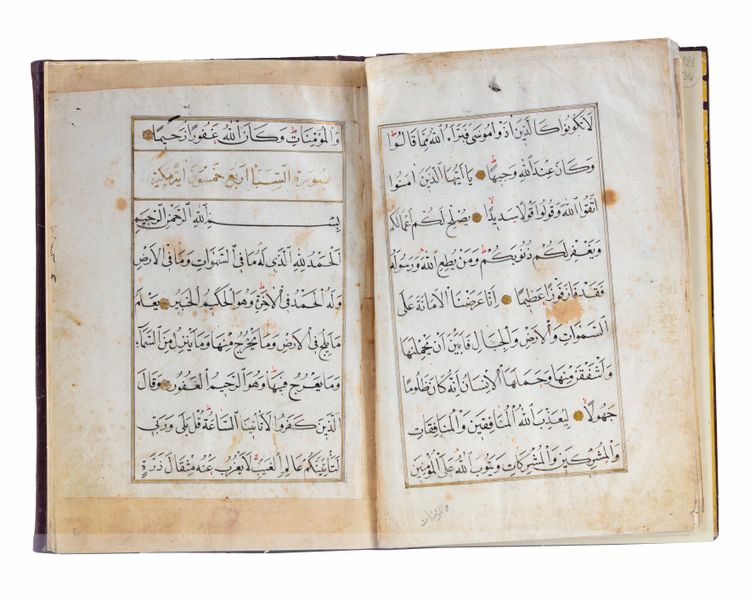 لا تكونوا كالذين اذوا موسى فبرأه الله مما قالوا
وكان عند الله وجيها يا ايها الذين امنوا
اتقوا الله وقولوا قولا سديدا يصلح لكم اعمالكم
ويغفر لكم ذنوبكم ومن يطع الله ورسوله
فقد فاز فوزا عظيما انا عرضنا الامانة على
السموات والارض والجبال فابين ان يحملنها
واشفقن منها وحملها الانسان انه كان ظلوما
جهولا ليعذب الله المنافقين والمنافقات
والمشركين والمشركات ويتوب الله على المؤمنين
والمؤمنات
والمؤمنات وكان الله غفورا رحيما
سورة السبا اربع خمسون اية مكية
بسم الله الرحمن الرحيم
الحمد لله الذي له ما في السموات وما في الارض
وله الحمد في الاخرة وهو الحكيم الخبير يعلم
ما يلج في الارض وما يخرج منها وما ينزل من السماء
وما يعرج فيها وهو الرحيم الغفور وقال
الذين كفروا لا تاتينا الساعة قل بلى وربي
لتاتينكم عالم الغيب لا يعزب عنه مثقال ذرة